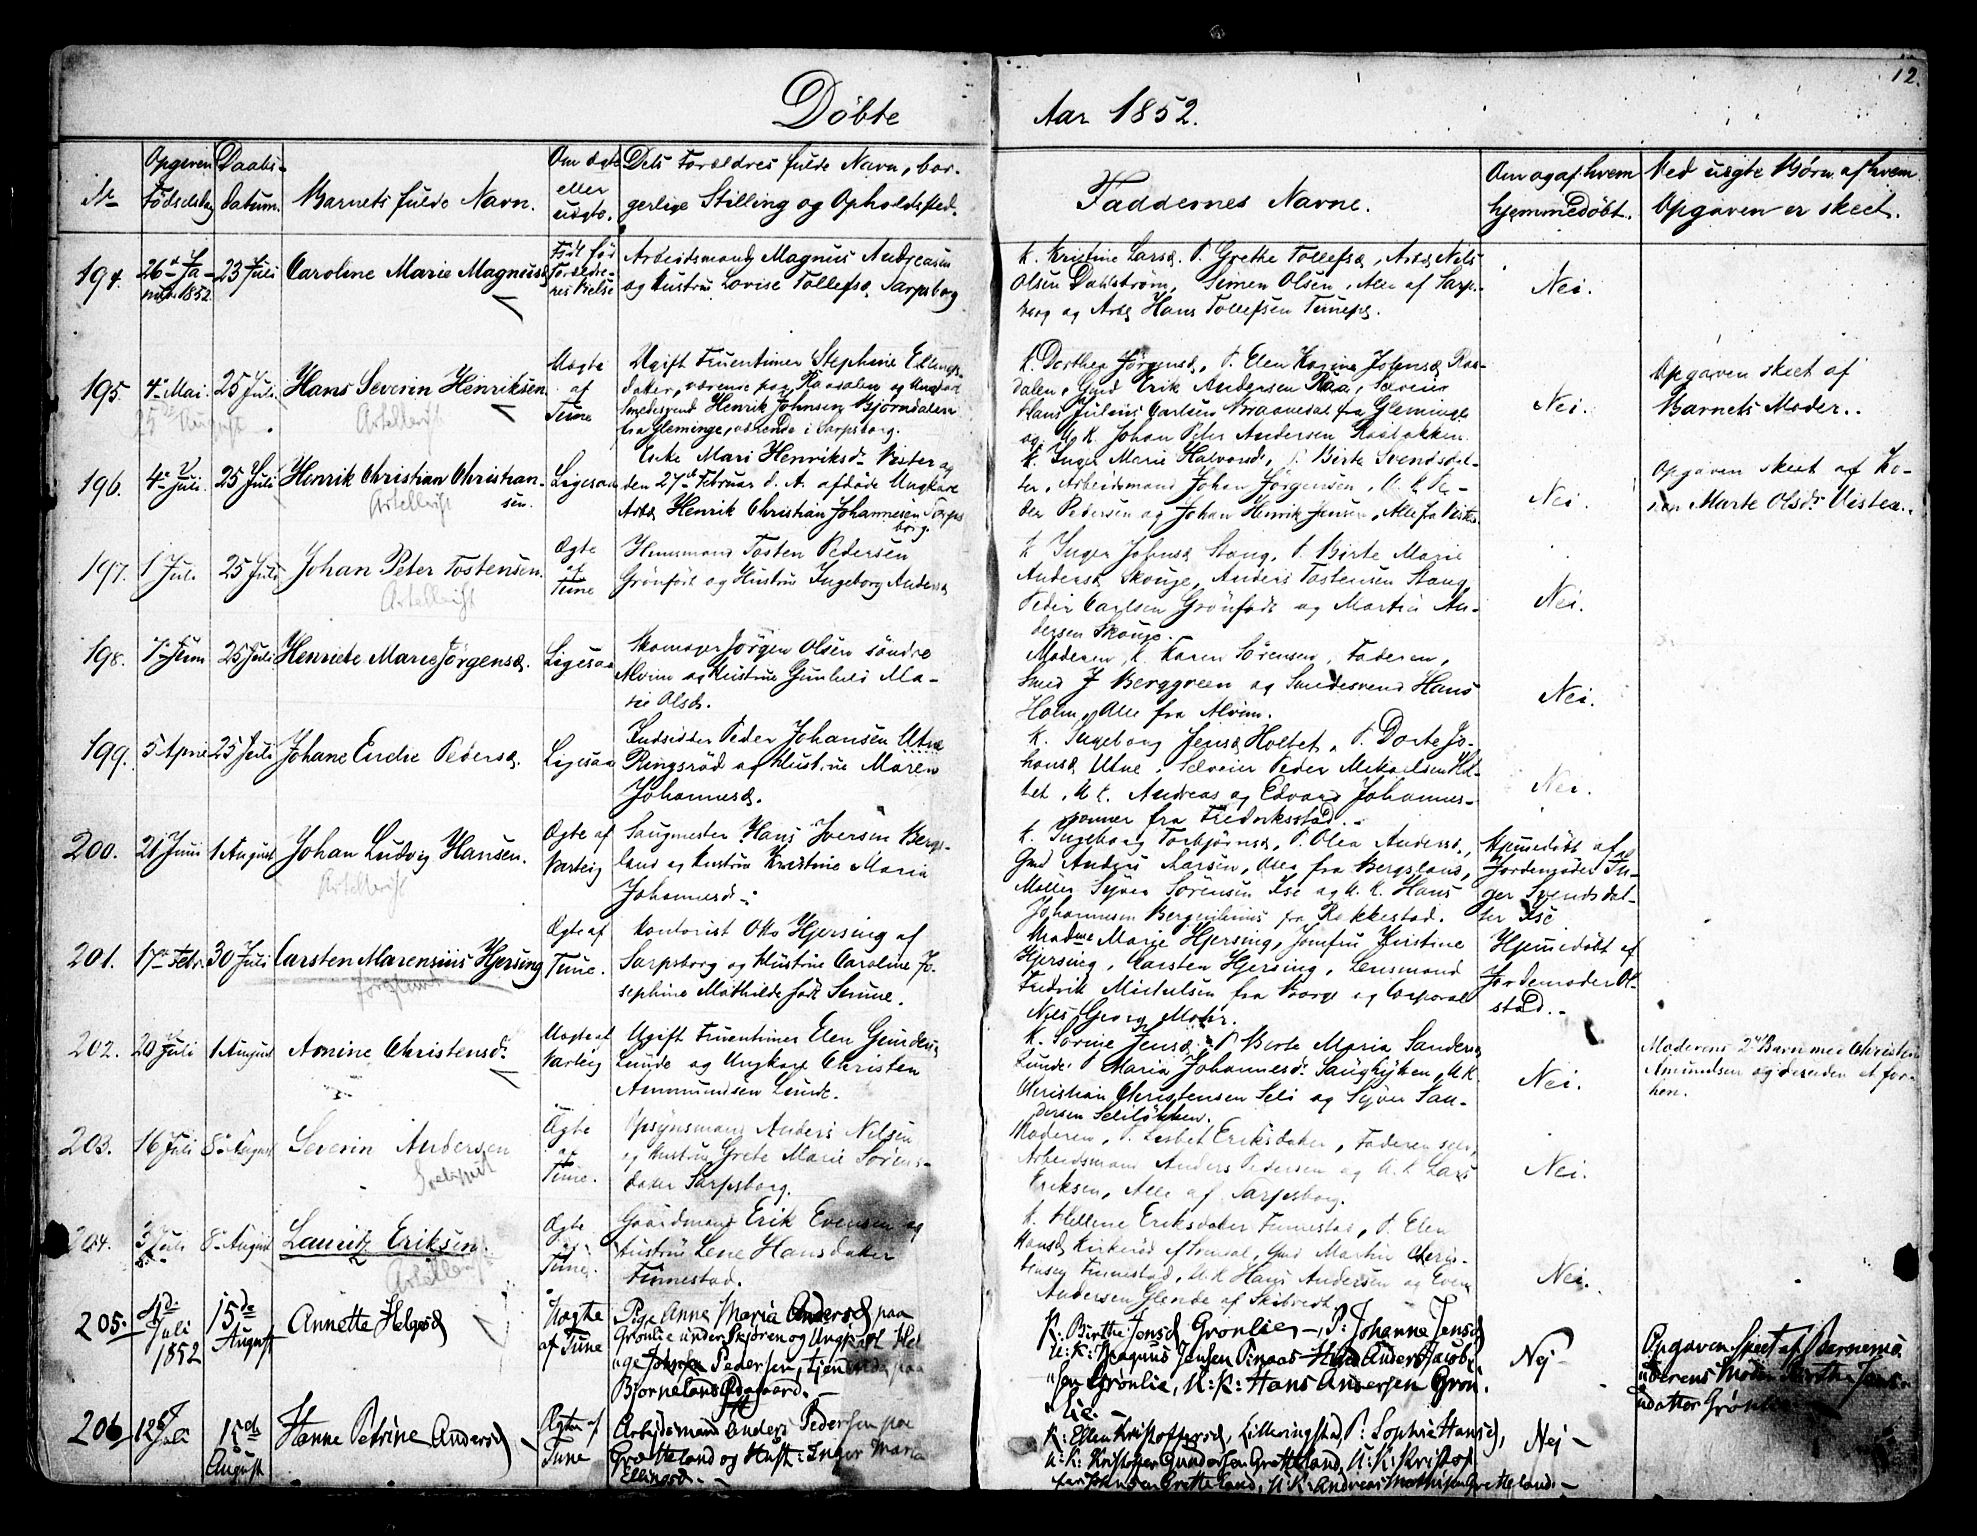 12.
Døbte Aar 1852.
No
Opgiven Fødselsdag
Daabs-datum.
Barnets fulde Navn.
Om ægte eller uægte.
Dets Forældres fulde Navn, borgerlige Stilling og Opholdssted.
Faddernes Navne.
Om og af hvem hjemmedøbt.
Ved uægte Børn, af hvem Opgaven er skeet.
194. 26de Januar 1852 23 Juli Caroline Marie Magnusd
Arbeidsmand Magnus Andreasen
og Hustru Lovise Tollefsd. Sarpsborg
K. Kristine Larsd. P. Grethe Tollefsd, Arbd Nils
Olsen Dahlstrøm, Simen Olsen, Alle af Sarps-
borg og Arbd Hans Tollefsen Tune
Nei.
195. 4de Mai. 25 Juli Hans Severin Henriksen
25de August
Artellerist
Uægte af Tune
Ugift Fruentimer Stephine Ellings-
datter, værende paa Raadalen og Ungkarl
Smedesvend Henrik Johnsen Bjørndalen
fra Glemminge, værende i Sarpsborg.
K. Dorthea Jørgensd, P. Elen Karine Johnsd Raa-
dalen, Gmd Erik Andersen Raa, Selveier
Hans Julius Carlsen Braanedal fra Glemminge
og U. K. Johan Peter Andersen
Nei.
Opgaven skeet af
Barnets Moder..
196. 4de Juli. 25 Juli Henrik Christian Christian-
sen.
Artellerist
Ligesaa
Enke Mari Henriksdr Vister og
den 27de Februar d. A. afdøde Ungkarl
Arbd Henrik Christian Johannesen Sarps
borg
K. Inger Marie Halvorsd, P. Birte Svendsdat-
ter, Arbeidsmand Johan Jørgensen, U. K. Pe-
der Pedersen og Johan Henrik Jensen, Alle fra Vister
Nei.
Opgaven skeet af Ko-
nen Marte Olsdr Visten..
197. 1 Juli 25 Juli Johan Peter Tostensen.
Artellerist
Ægte af Tune
Huusmand Tosten Pedersen
Grønfød og Hustru Ingeborg Andersd
K Inger Johnsd Stang, P. Birte Marie
Andersd Skouge, Anders Tostensen Stang
Peder Carlsen Grønfød og Martin An-
dersen Skouge.
Nei.
198. 7de Juni 25 Juli Henriete Marie Jørgensd.
Ligesaa
Skomager Jørgen Olsen søndre
Alvim og Hustru Gunhild Ma-
rie Olsd.
Moderen, K. Karen Sørensen, Faderen,
Smed J Berggreen og Smedesvend Hans
Holm, Alle fra Alvim.
Nei.
199. 5 April 25 Juli Johane Endre Pedersd.
Ligesaa
Indsidder Peder Johansen Utne
Ringsrød og Hustrue Maren
Johannesd.
K. Ingeborg Jensd Holtet, P. Dorte Jo-
hansd Utne, Selveier Peder Mikaelsen Hol-
tet, U K. Andreas og Edvard Johannes-
sønner fra Frederiksstad.
Nei.
200. 21 Juni 1 August Johan Ludvig Hansen.
Artellerist
Ægte af Varteig
Saugmester Hans Iversen Bergs-
land og Hustrue Kristine Maria
Johannesd.
K. Ingeborg Torbjørnsd, P. Olea Andersd,
Gmd Anders Larsen, Alle fra Bergsland,
Møller Syver Sørensen Ise og U. K. Hans
Johannesen fra Rokkestad.
Hjemmedøbt af
Jordemoder In-
ger Svendsdat-
ter Ise
201. 17de Febr. 30 Juli Carsten Marensius Hjersing
Ægte af Tune.
Kontorist Otto Hjersing af
Sarpsborg og Hustrue Caroline Jo-
sephine Mathilde født
Madme Marie Hjersing, Jomfru Kirstine
Hjersing, Carsten Hjersing, Lensmand
Fredrik Mickelsen fra Borge og Corporal
Nils Georg Mohr.
Hjemmedøbt af
Jordemoder Ol-
stad.
202. 20 Juli 1 August Annine Christensdr
Uægte af Varteig
Ugift Fruentimer Elen Gundersd
Lunde og Ungkarl Christen
Ammundsen Lunde.
K. Sørine Jensd P Berte Maria Sandersd
Lunde. P Maria Johannesd. U K
Christian Christensen Seli og Syver San-
dersen Seliløkken.
Nei.
Moderens 2det Barn med Christen
Amundsen og desuden et for-
hen.
203. 16 Juli 8de August Severin Andersen
Ægte af Tune.
Opsynsmand Anders Nilsen
og Hustrue Grete Marie Sørens-
datter Sarpsborg.
Moderen, P. Lisbet Eriksdatter, Faderen selv,
Arbeidsmand Anders Pedersen og U. K. Lars
Eriksen, Alle af Sarpsborg.
Nei.
204. 3 Juli 8de August Lauritz Eriksen.
Artellerist
Ægte Tune.
Gaardmand Erik Evensen og
Hustrue Lene Hansdatter
Finnestad.
K. Helline Eriksdatter Finnestad, P. Elen
Hansd Kirkerød, Gmd Martin Chris-
tensen Finnestad, U K Hans Andersen og Even
Andersen Glende af Skibtvedt
Nei.
205. 4de Juli 1852 15de August Annette Helgesd
Uægte af Tune
Pige Anne Maria Andersd paa
Grønlie under Skjøren og Ungkarl Hel
"ge Pedersen, tjenende paa
Bjørneland
K: Birthe Jensd Grønlie, P: Johanne Jensd
U: K: Magnus Jensen Anders Jacob
"sen Grønlie, U: K: Hans Andersen Grøn
"lie.
Nej
Opgaven Skeet af Barnemo
"derens Moder Birthe Jens
datter Grønlie
206 12te Juli 15de August Hanne Petrine Andersd
Ægte af Tune
Arbejdsmand Anders Pedersen paa
Grætteland og Hust: Inger Maria
Ellingsd.
K: Ellen Kristoffersd, P: Sophie Hansd,
U: K: Kristoffer Gundersen Grætteland, U: K: Kristof
fer Grætteland, U: K: Andreas Mathisen Grætteland.
Nej